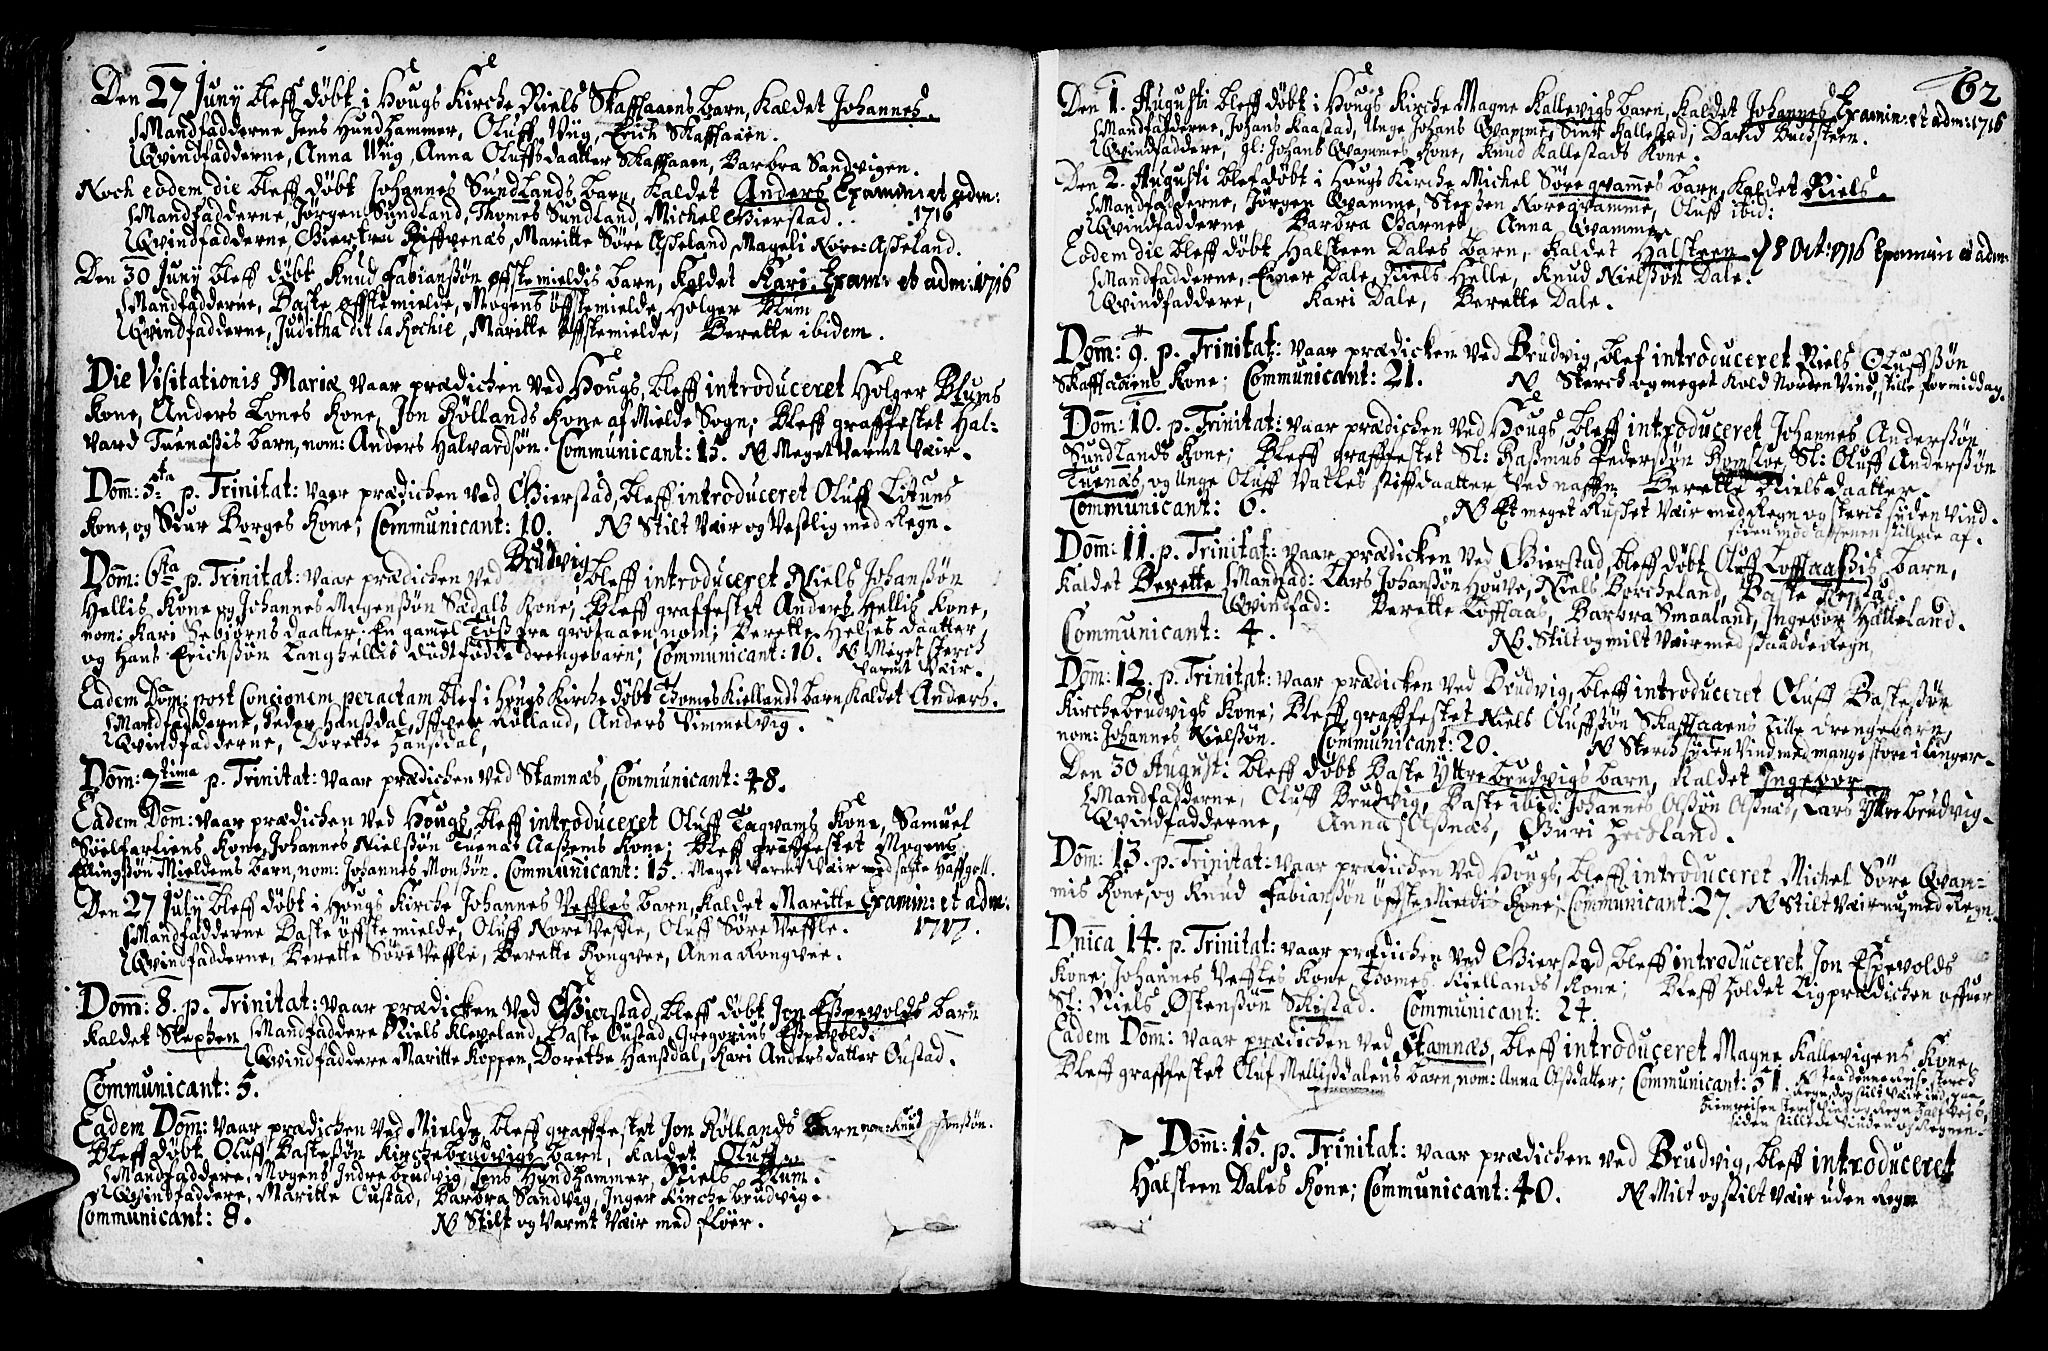 Den 27 Juny bleff döbt i Hougs Kirche Niels Skafhaaens barn, kaldet Johannes.
Mandfadderne Jens Hundhammer, Oluff Wiig, Erich Skafhaaen.
Qvindfadderne, Anna Wiig, Anna Oluffsdaatter Skafhaaen, Barbra Sandvigen.
Noch eodem die bleff döbt Johannes Sundlands barn, kaldet Anders Examin: et adm:
1716
Mandfadderne, Jörgen Sundland, Thomes Sundland, Michel Gierstad.
Qvindfadderne, Giertru Riffvenæs, Maritte Söre Aasheland, Mageli Nore: Aasheland.
Den 30 Juny bleff döbt Knud Fabianßön Öffstemieldis barn, kaldet Kari. Exam: et adm: 1716
Mandfadderne, Baste Öffstemielde, Mogens Öffstemielde, Holger Blum
Qvindfadderne, Juditha dit la Rochie, Maritte Öffstemielde, Berette ibidem.
Die Visitationis Mariæ vaar prædichen ved Hougs, bleff introduceret Holger Blums
Kone, Anders Lones Kone, Jon Röllands Kone af Mielde Sogn; Bleff graffestet Hal-
vard Tuenæssis barn, nom: Anders Halvardsön. Communicant: 15. NB Meget varmt vær.
Dom: 5ta p. Trinitat: vaar prædichen ved Gierstad, bleff introduceret Oluff Lötuns
Kone, og Siur Borges Kone; Communicant: 10. NB Stilt Vær og Vestlig med Regn.
Dom: 6ta p. Trinitat: vaar prædichen ved Brudvig, bleff introduceret Niels Johanßön
Hellis Kone og Johannes Mogenßön Sædals Kone; Bleff graffestet Anders Hellis Kone,
nom: Kari Sebiörns daatter. En gamel Töß fra gröfaaen nom: Berette Helges daatter
og Hans Erichßön Langhellis dödfödde drengebarn; Communicant: 16. NB Meget sterch
varmt Vær.
Eadem Dom: post Concionem peractam blef i Hougs Kirche döbt Thomes Kiellands barn, kaldet Anders.
Mandfadderne, Peder Hanßdal, Iffver Rölland, Anders Simmelvig.
Qvindfadderne, Dorethe Hanßdal,
Dom: 7tima p. Trinitat: vaar prædichen ved Stamnæs, Communicant: 48.
Eadem Dom: vaar prædichen ved Hougs, bleff introduceret Oluff Tægvams Kone, Samuel
Söelfartiens Kone, Johannes Nielßön Tuenæs Aaßems Kone; Bleff graffestet Mogens
Ellingßön Mieldems barn, nom: Johannes Monßön. Communicant: 15. Meget varmt Vær med sagte Haffgott.
Den 27 July bleff döbt i Hougs Kirche Johannes Veffles barn, kaldet Maritte Examin: et adm:
1717.
Mandfadderne Baste Öffstemielde, Oluff Nore Veffle, Oluff Söre Veffle.
Qvindfadderne, Berette Söre Veffle, Berette Rongvee, Anna Rongvee.
Dom: 8. p. Trinitat: vaar prædicken ved Gierstad, bleff döbt Jon Eßpevolds barn
kaldet Stephen Mandfaddere Niels Kleveland, Baste Oustad, Gregorius Eßpevold.
Qvindfaddere Maritte Koppen, Dorethe Hanßdal, Kari Andersdatter Oustad.
Communicant: 5.
Eadem Dom: vaar prædichen ved Mielde, bleff graffestet Jon Röllands barn, nom: Knud Jonßön.
Bleff döbt Oluff Basteßön Kirchebrudvigs barn, kaldet Oluff.
Mandfaddere, Mogens Indrebrudvig, Jens Hundhammer, Niels Blum.
Qvindfaddere, Maritte Oustad, Barbra Sandvig, Inger Kirchebrudvig.
Communicant: 8. NB Stilt og varmt Vær med flöer.
62
Den 1. Augusti bleff döbt i Hougs Kirche Magne Kallevigs barn, kaldet Johannes Examin: et adm: 1716
Mandfadderne, Johans Kaastad, Unge Johans Qvamme, Siur Kallestad, David Buchsteen.
Qvindfaddere, gl: Johans Qvammes Kone, Knud Kallestads Kone.
Den 2. Augusti blef döbt i Hougs Kirche Michel Söreqvammes barn, kaldet Niels.
Mandfadderne, Jörgen Qvamme, Stephen Noreqvamme, Oluff ibid:
Qvindfadderne Barbra Garnes, Anna Qvamme
Eodem die bleff döbt Halsteen Dales barn, kaldet Halsteen 8 Oct: 1716 Examin et adm:
Mandfadderne, Einer Dale, Niels Helle, Knud Nielßön Dale.
Qvindfaddere, Kari Dale, Berette Dale.
Dom: 9. p. Trinitat: vaar prædicken ved Brudvig, blef introduceret Niels Oluffßön
Skafhaaens Kone; Communicant: 21. NB Sterch og meget kold Norden Vind, stille formiddag.
Dom: 10. p. Trinitat: vaar prædichen ved Hougs, bleff introduceret Johannes Anderßön
Sundlands Kone; Bleff graffestet Sl: Raßmus Pederßön Romsloe, Sl: Oluff Anderßön
Tuenæs, og Unge Oluff Vatles stiffdaatter ved naffn Berette Nielsdaatter.
Communicant: 6. NB Et meget Rusket Vær med Regn og sterck synden Vind.
siden mod aftenen stillede af.
Dom: 11. p. Trinitat: vaar prædicken ved Gierstad, bleff döbt Oluff Loffaaßis barn,
kaldet Berette Mandfad: Lars Johanßön Houve, Niels Borcheland, Baste Repstad.
Qvindfad: Berette Loffaas, Barbra Smaaland, Ingebor Hatteland.
Communicant: 4. NB. Stilt og milt Vær med staadde Regn.
Dom: 12. p. Trinitat: vaar prædicken ved Brudvig, bleff introduceret Oluff Basteßön
Kirchebrudvigs Kone; Bleff graffestet Niels Oluffßön Skafhaaens lille drengebarn,
nom: Johannes Nielßön. Communicant: 20. NB Sterch synden Vind med mange store ilinger.
Den 30 August: bleff döbt Baste Yttrebrudvigs barn, kaldet Ingebor
Mandfadderne, Oluff Brudvig, Baste ibid: Johannes Olßön Olsnæs, Lars Yttrebrudvig.
Qvindfadderne, Anna Olsnæs, Guri Heckland.
Dom: 13. p. Trinitat: vaar prædichen ved Hougs, bleff introduceret Michel Söre Qvam-
mis Kone, og Knud Fabianßön Öffstemieldis Kone; Communicant: 27. NB Stilt Vær men med Regn.
Dnica 14. p. Trinitat: vaar prædichen ved Gierstad, bleff introduceret Jon Espevolds
Kone, Johannes Veffles Kone Thomes Kiellands Kone; Bleff holdet Ligprædichen offver
Sl: Niels Østenßön Skistad. Communicant: 24.
Eadem Dom: vaar prædichen ved Stamnæs, bleff introduceret Magne Kallevigens Kone,
Bleff graffestet Oluf Mellißdalens barn, nom: Anna Olsdatter; Communicant: 51. NB paa denne Reise sterch
Regn, dog stilt Vær ind, paa
Hiemreisen sterch Vind og Regn halfveis,
siden stillede Vinden og Regnen.
Dom: 15. p. Trinitat: vaar prædichen ved Brudvig, bleff introduceret
Halsteen Dales Kone; Communicant: 40. NB Milt og stilt Vær uden Regn